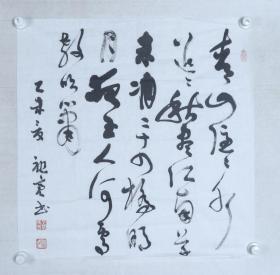 青山隐隐水
迢迢秋尽江南草
未凋二十四桥明
月夜玉人何处
教吹箫
乙未夏 书